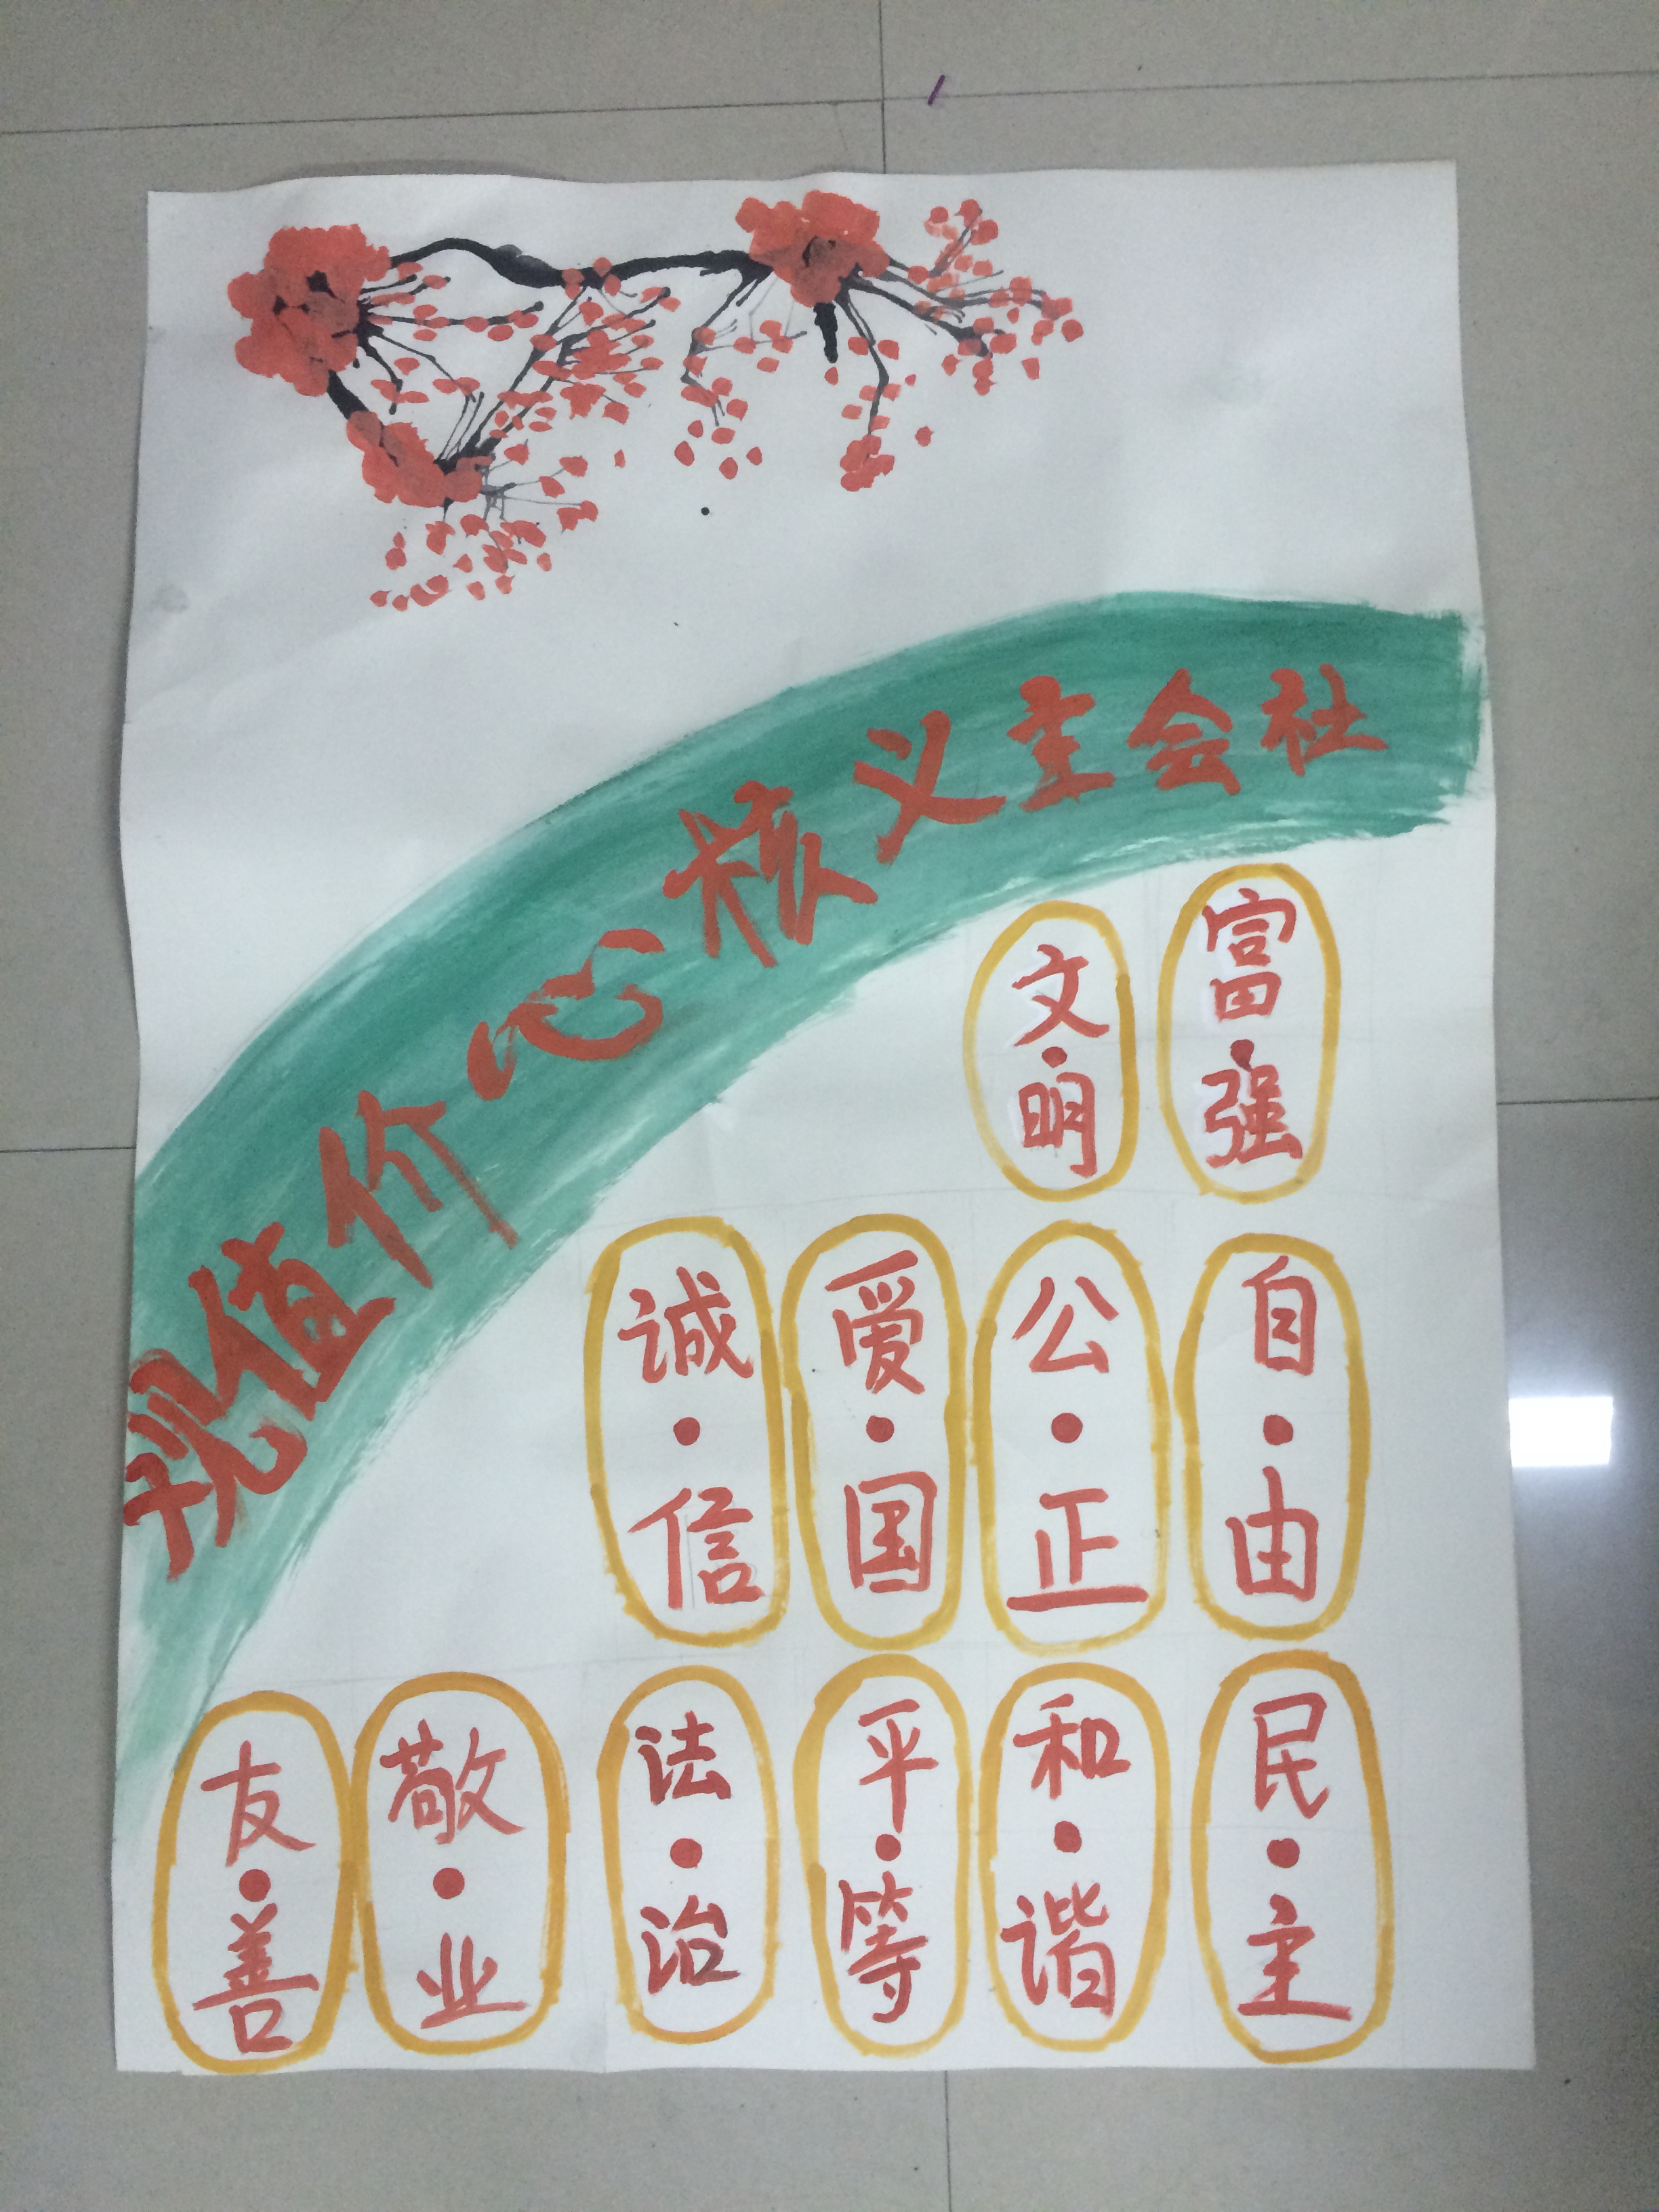 社会主义核心价值观
富·强
文·明
自·由
公·正
爱·国
诚·信
民·主
和·谐
平·等
法·治
敬·业
友·善